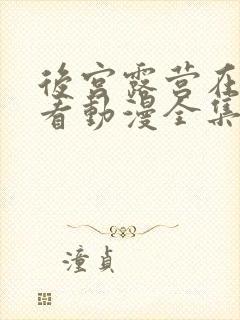 後宮露营在
看動漫全集
潼貞